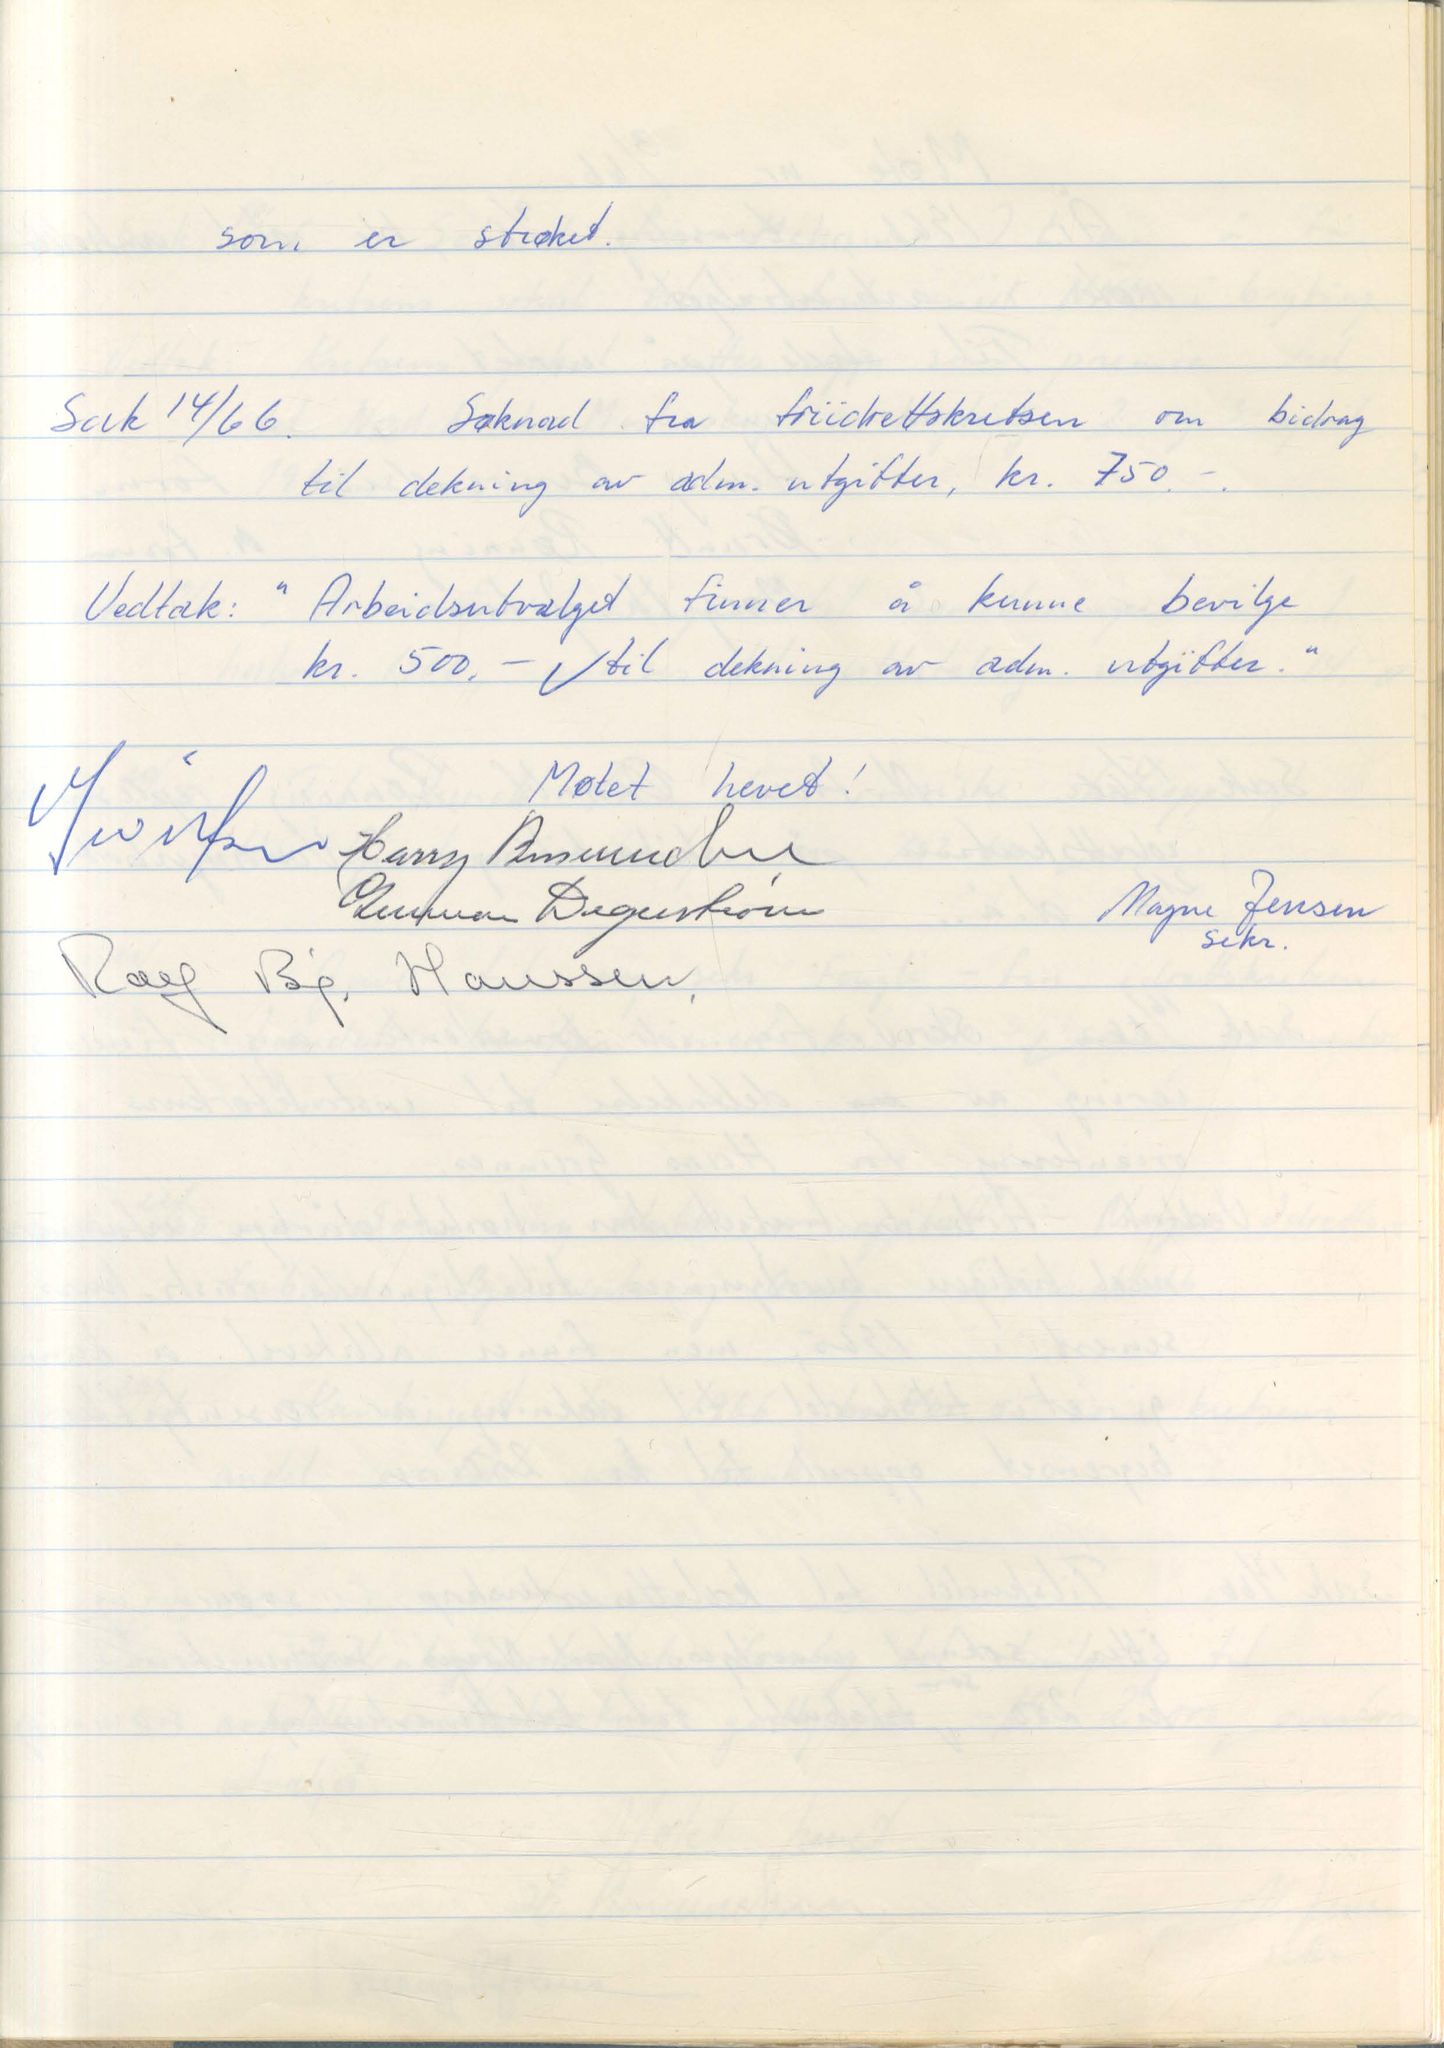 som er strøket.
Sak 14/66. Søknad fra friidrettskretsen om bidrag
til dekning av adm. utgifter, kr. 750.-.
Vedtak: " Arbeidsutvalget finner å kunne bevilge
kr. 500.- til dekning av adm. utgifter."
Møtet hevet!
Harry
Gunnar Degerstrøm
Magne Jensen
sekr.
Rolf Bj. Hanssen.